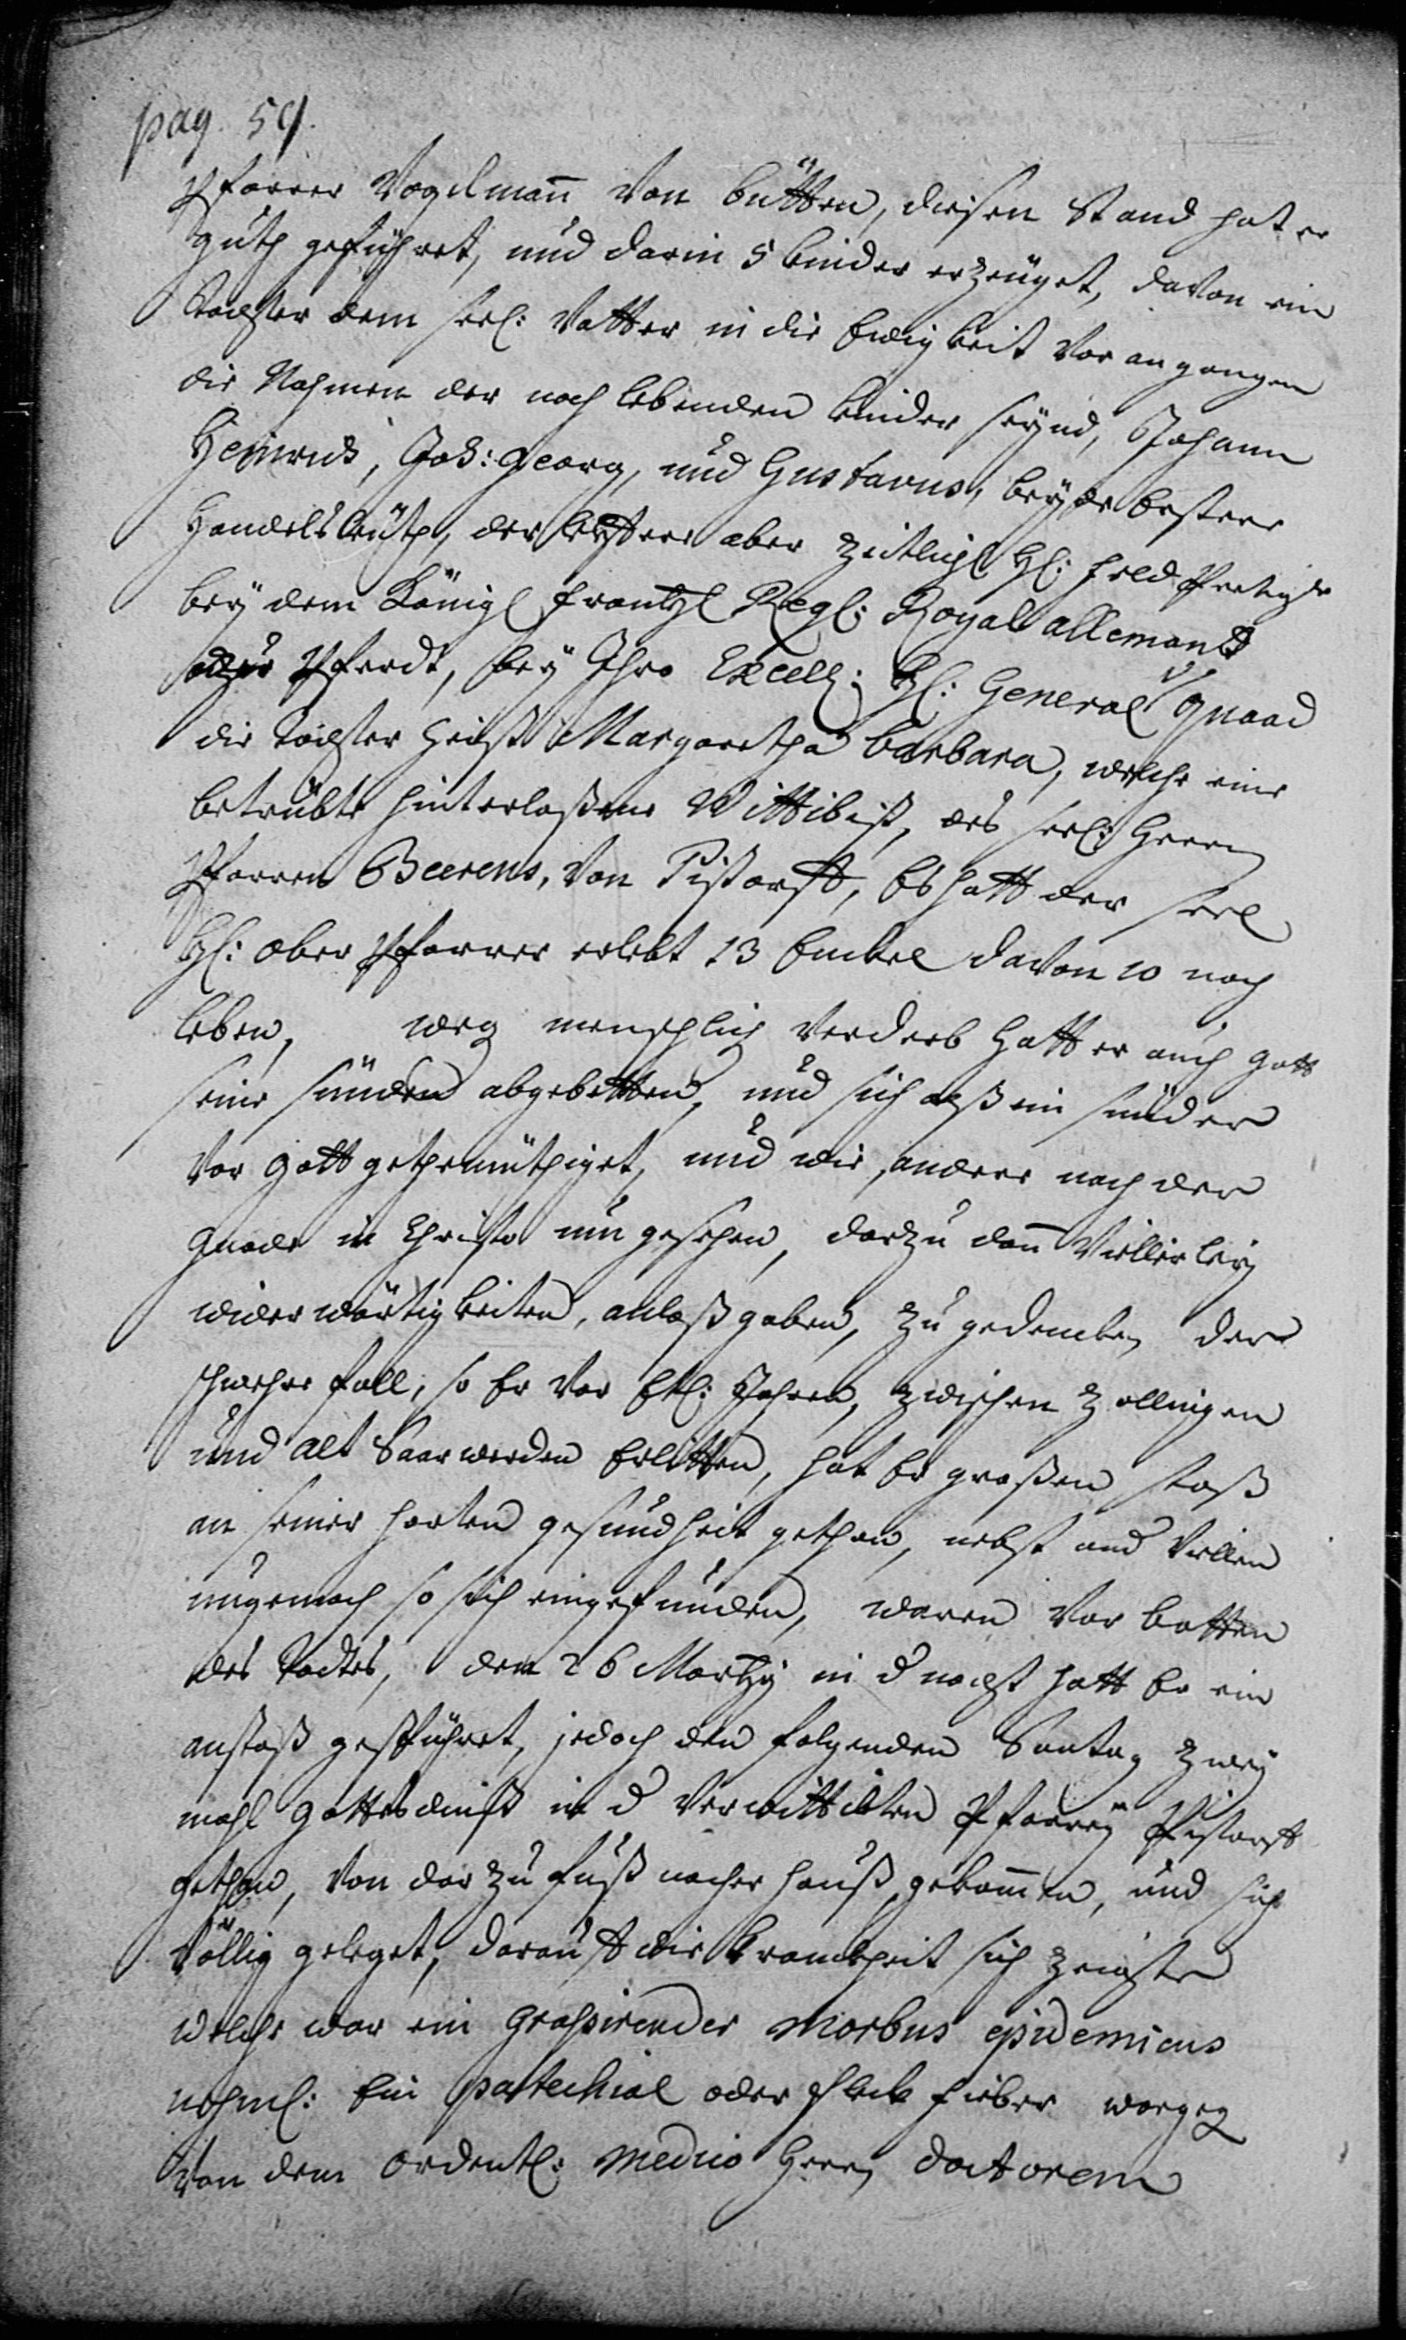 pag. 59.
Pfarrer Vogelman̄ von bütten, diesen Stand hat er
guth geführet, und darin 5 kinder erzeuget, davon ein
Tochter dem seel: Vatter in die Ewigkeit voran gangen
die Nahmen der noch lebenden kinder seynd, Johann
Heinrich, Joh: Georg, und Gustavus, beyde erstere
Handels leuthe, der letztere aber zeitlich H: feld Prediger
bey dem Königl frantz Reg: Royal allemand
zu Pferdt, bey Ihro Excell: H: General Quaad
die Tochter heist Margaretha barbara, welche eine
betrübte hinterlaßene Wittib ist, des seel: Herrn
Pfarrer Beerens, von Pistorff, Es hatt der seel
H: ober Pfarrer erlebt 13 Enckel davon 10 noch
leben, weg menschlich verderb hatt er auch gott
seine sünden abgebetten, und sich alß ein sünder
vor gott gethemüthiget, und wie andere nach der
gnade in Christo umgesehen, darzu dan̄ viellerley
wiederwärtigkeiten, anlaß gaben, zu gedencken der
schwehre fall, so Er vor Etl: Jahren, zwischen Zollingen
und alt Saarwerden Erlitten, hat Er großen stoß
an seiner harten gesundheit gethan, nebst and vielen
ungemach so sich eingefunden, waren vor botten
des Todtes, den 26 Martzy in d nacht hatt Er ein
anstoß gespühret, jedoch den folgenden Sontag zwey
mahl gottesdienst in d verwittibten Pfarrey Pistorff
gethan, von dar zu fuß nacher hauß gekom̄en, und sich
völlig geleget, darauff die kranckheit sich zeigte
welche war ein grassirender Morbus epidemicus
nehml: Ein pattechial oder fleck fieber worgeg
von dem ordentl: Medico Herrn doctorem